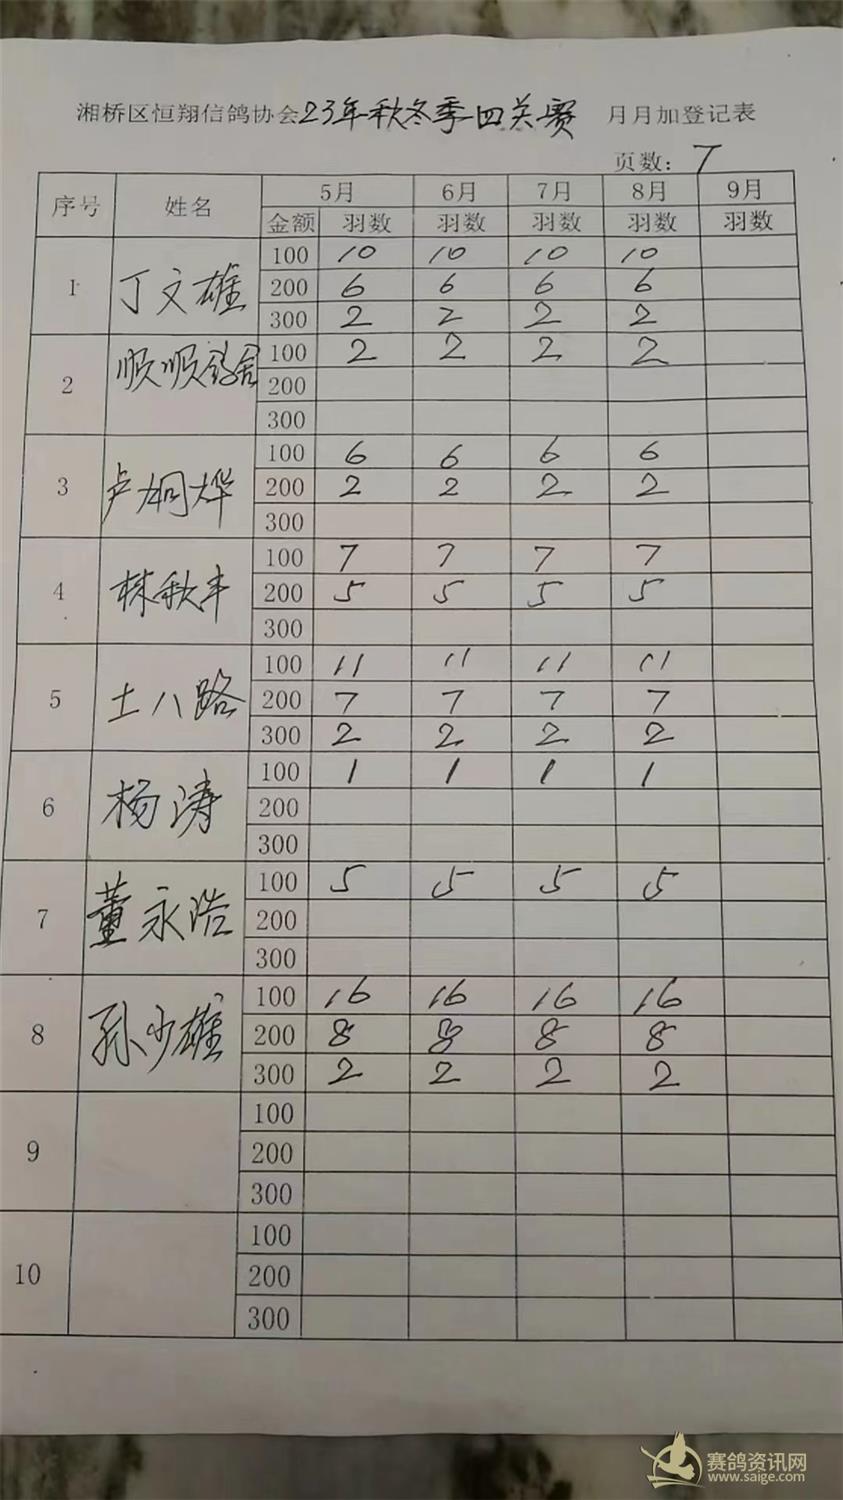 湘桥区恒翔信鸽协会23年秋冬季四关赛 月月加登记表
页数: 7
序号 姓名 5月 6月 7月 8月 9月
金额 羽数 羽数 羽数 羽数 羽数
1 丁文雄 100 10 10 10 10
200 6 6 6 6
300 2 2 2 2
2 顺顺鸽舍 100 2 2 2 2
200
300
3 卢桐烨 100 6 6 6 6
200 2 2 2 2
300
4 林秋丰 100 7 7 7 7
200 5 5 5 5
300
5 土八路 100 11 11 11 11
200 7 7 7 7
300 2 2 2 2
6 杨涛 100 1 1 1 1
200
300
7 董永浩 100 5 5 5 5
200
300
8 孙少雄 100 16 16 16 16
200 8 8 8 8
300 2 2 2 2
9 100
200
300
10 100
200
300
赛鸽资讯网
www.saige.com